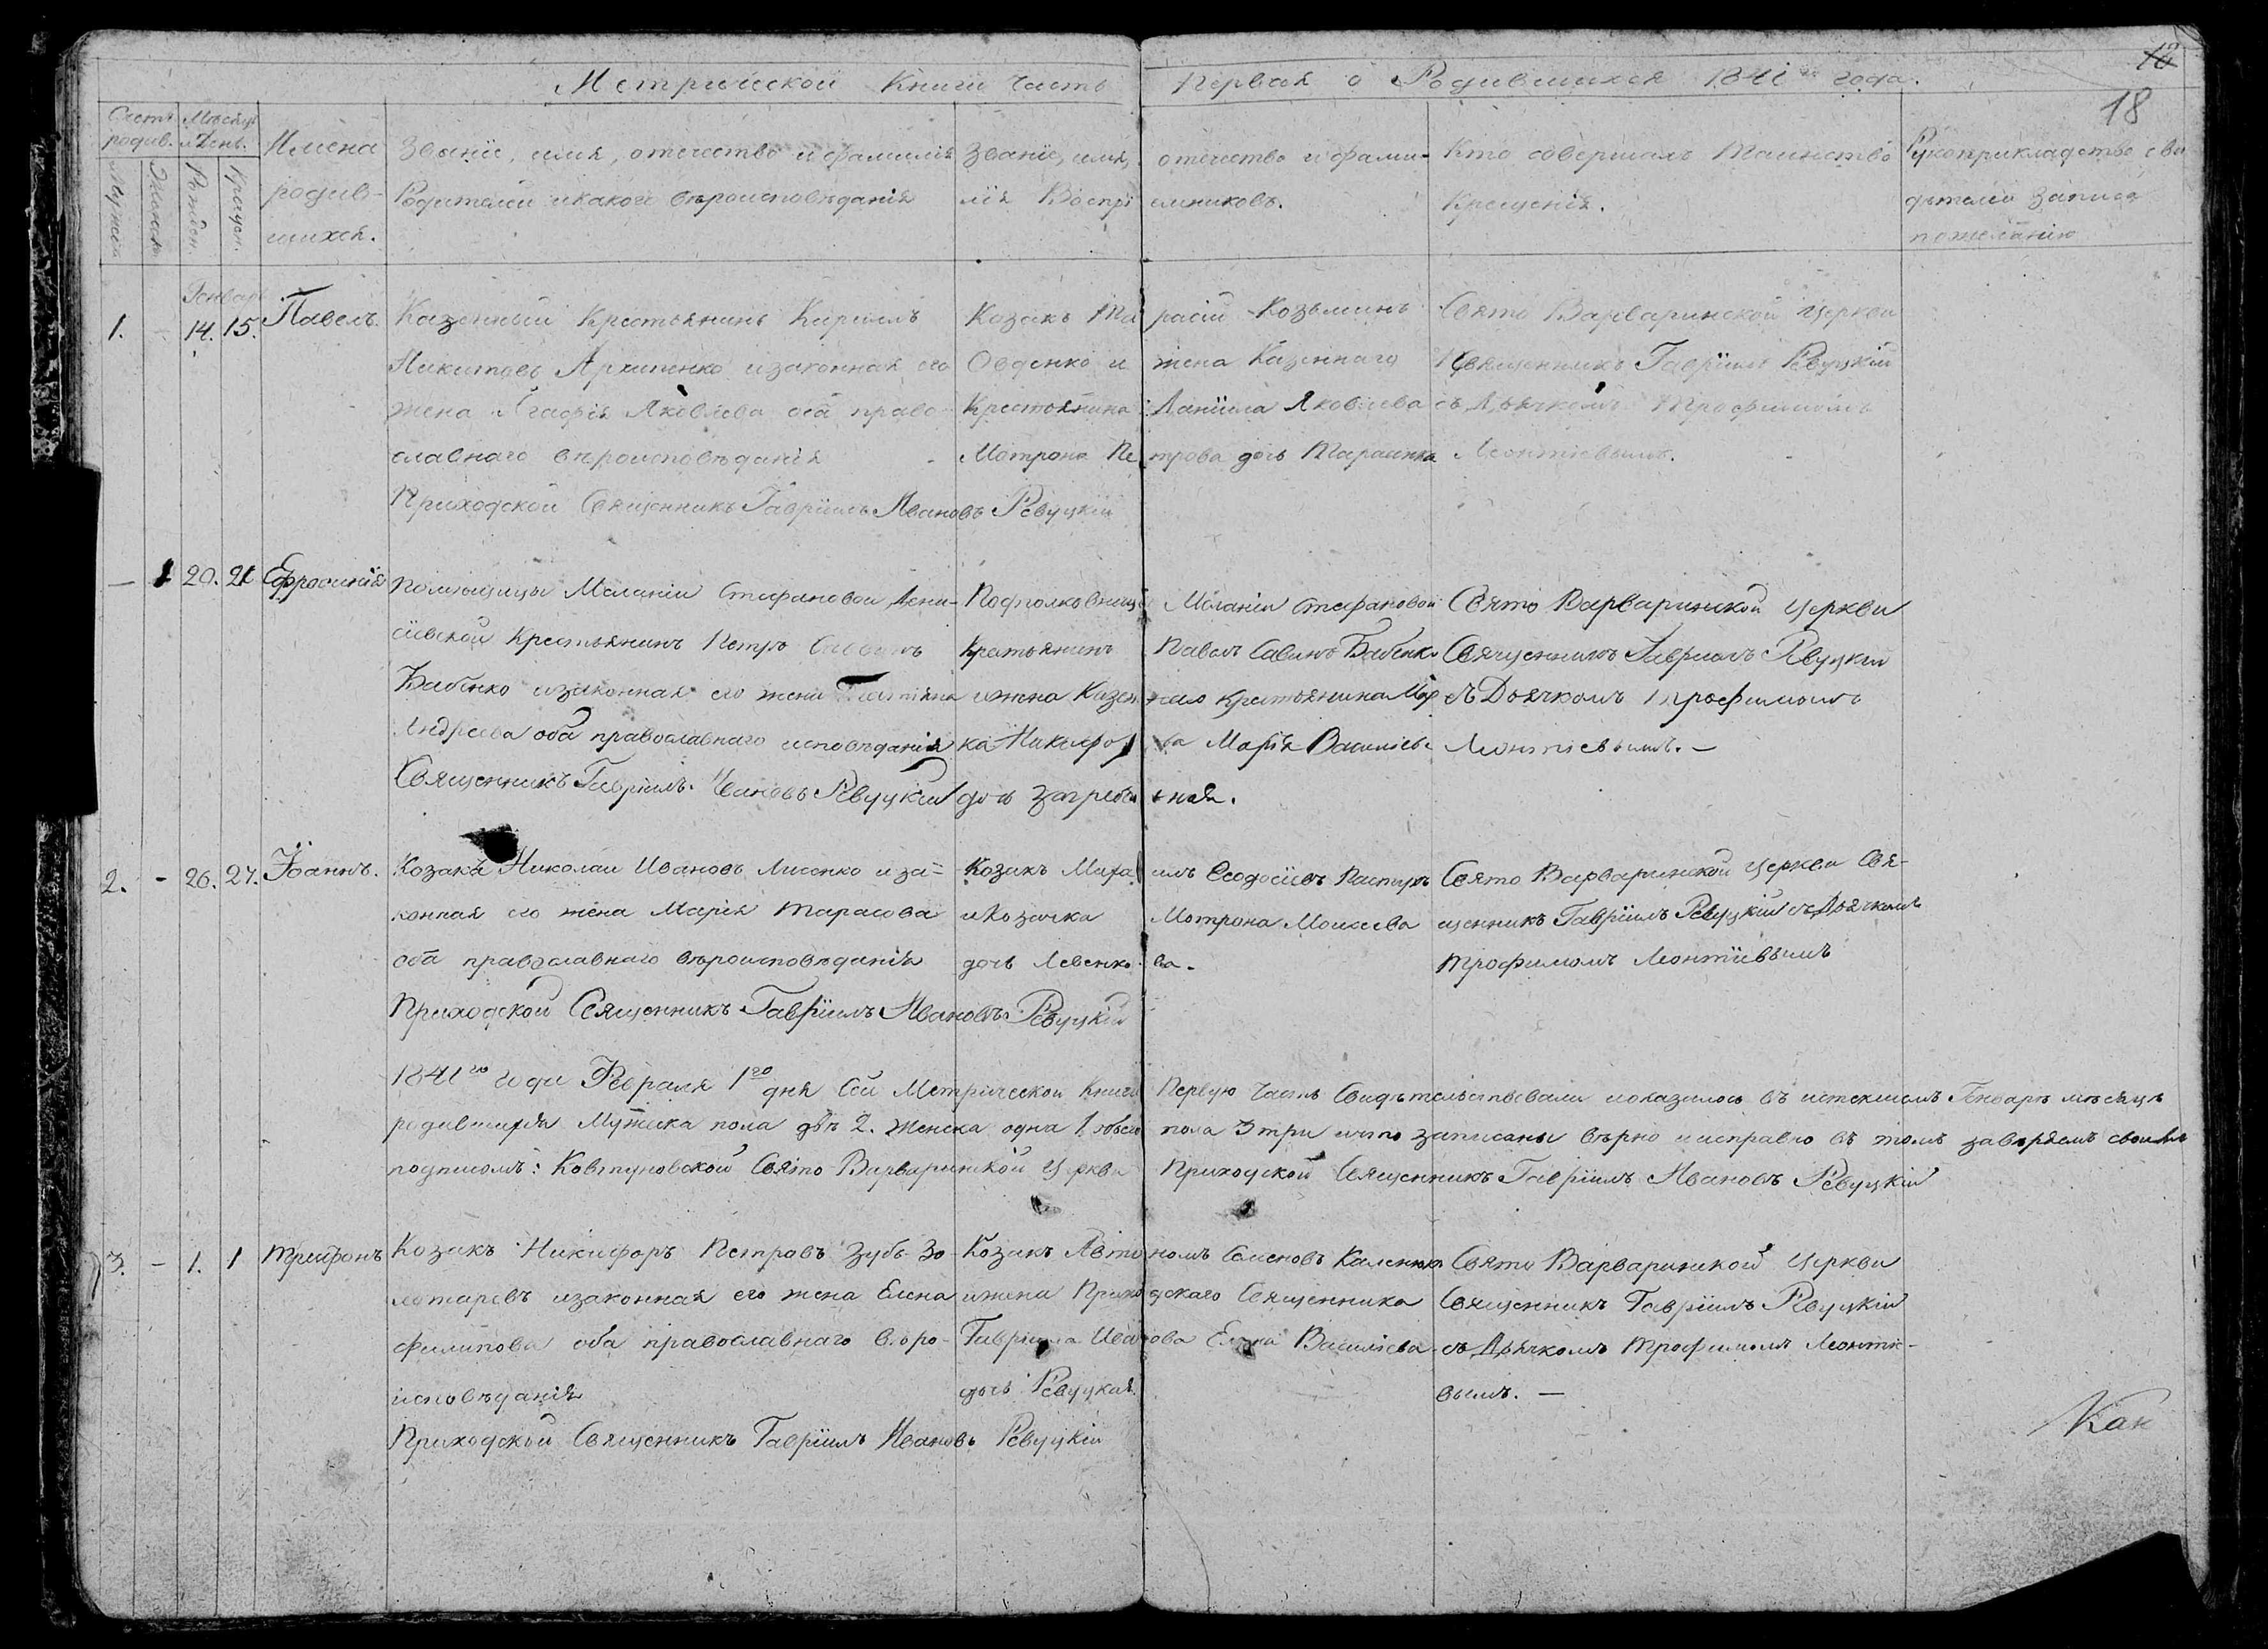 Метрической Книги Часть Первая о Родившихся 1841го года.
18
Счетъ родив.
Мѣсяцъ и День.
Мужеска
Женска
Рожден.
Крещен.
Имена
родив-
шихся.
Званіе, имя, отечество и фамилія
Родителей и какого вѣроисповѣданія
Званіе, имя, отечество и фами-
лія Воспріимниковъ.
Кто совершалъ Таинство
Крещенія.
Рукоприкладство сви
дѣтелей записа
по желанію
Генварь
1. 14. 15. Павелъ.
Казенный Крестьянинъ Кирилъ
Никитовъ Архипенко и законная его
жена Агафія Яковлева оба право
славнаго вѣроисповѣданія
Козакъ Тарасій Козьминъ
Овденко и жена Казеннаго
Крестьянина Даніила Яковлева
Мотрона Петрова дочь
Свято Варваринской церкви
Священникъ Гавріилъ Ревуцкій
съ Дьячкомъ Трофимомъ
Леонтіевымъ.
Приходской Священникъ Гавріилъ Ивановъ Ревуцкій
— 1 20. 21 Ефросинія
Помѣщицы Меланіи Стефановой Дени-
сіевской Крестьянинъ Петръ
Бабенко и законная его жена Татіяна
Андреева оба православнаго исповѣданія
Подполковницы Меланіи Стефановой
Крестьянинъ Павелъ Савинъ Бабенко
и жена Казеннаго крестьянина
Марія Васильева
дочь
Свято Варваринской церкви
Священникъ Гавріилъ Ревуцкій
съ Дьячкомъ Трофимомъ
Леонтіевымъ. —
Священникъ Гавріилъ Ивановъ Ревуцкій
2. - 26. 27. Іоаннъ.
Козакъ Николай Ивановъ Лисенко и за=
конная его жена Марія Тарасова
оба православнаго вѣроисповѣданія
Козакъ Михаилъ Ѳеодосіевъ Пастиръ
и Козачка Мотрона Моисеева
дочь Левенкова.
Свято Варваринской церкви Свя-
щенникъ Гавріилъ Ревуцкій съ Дьячкомъ
Трофимомъ Леонтіевымъ
Приходской Священникъ Гавріилъ Ивановъ Ревуцкій
1841го года Февраля 1го дня Сей Метрической Книги Первую Часть Свидѣтельствовали и оказалось въ истекшемъ Генварѣ мѣсяцѣ
родившихся Мужеска пола двѣ 2. женска одна 1. обоего пола 3 три и что записаны вѣрно и исправно въ томъ завѣряемъ своимъ
подписомъ: Ковтуновской Свято Варваринской Церкви Приходской Священникъ Гавріилъ Ивановъ Ревуцкій
3. - 1. 1 Трифонъ
Козакъ Никифоръ Петровъ Зубъ Зо-
лотаревъ и законная его жена Елена
Филипова оба православнаго вѣро-
исповѣданія
Козакъ Автономъ Семеновъ Каленюкъ
и жена Приходскаго Священника
Гавріила Иванова Елена Василіева
дочь Ревуцкая.
Свято Варваринской церкви
Священникъ Гавріилъ Ревуцкій
съ Дьячкомъ Трофимомъ Леонтіе-
вымъ. —
Приходской Священникъ Гавріилъ Ивановъ Ревуцкій
Кан